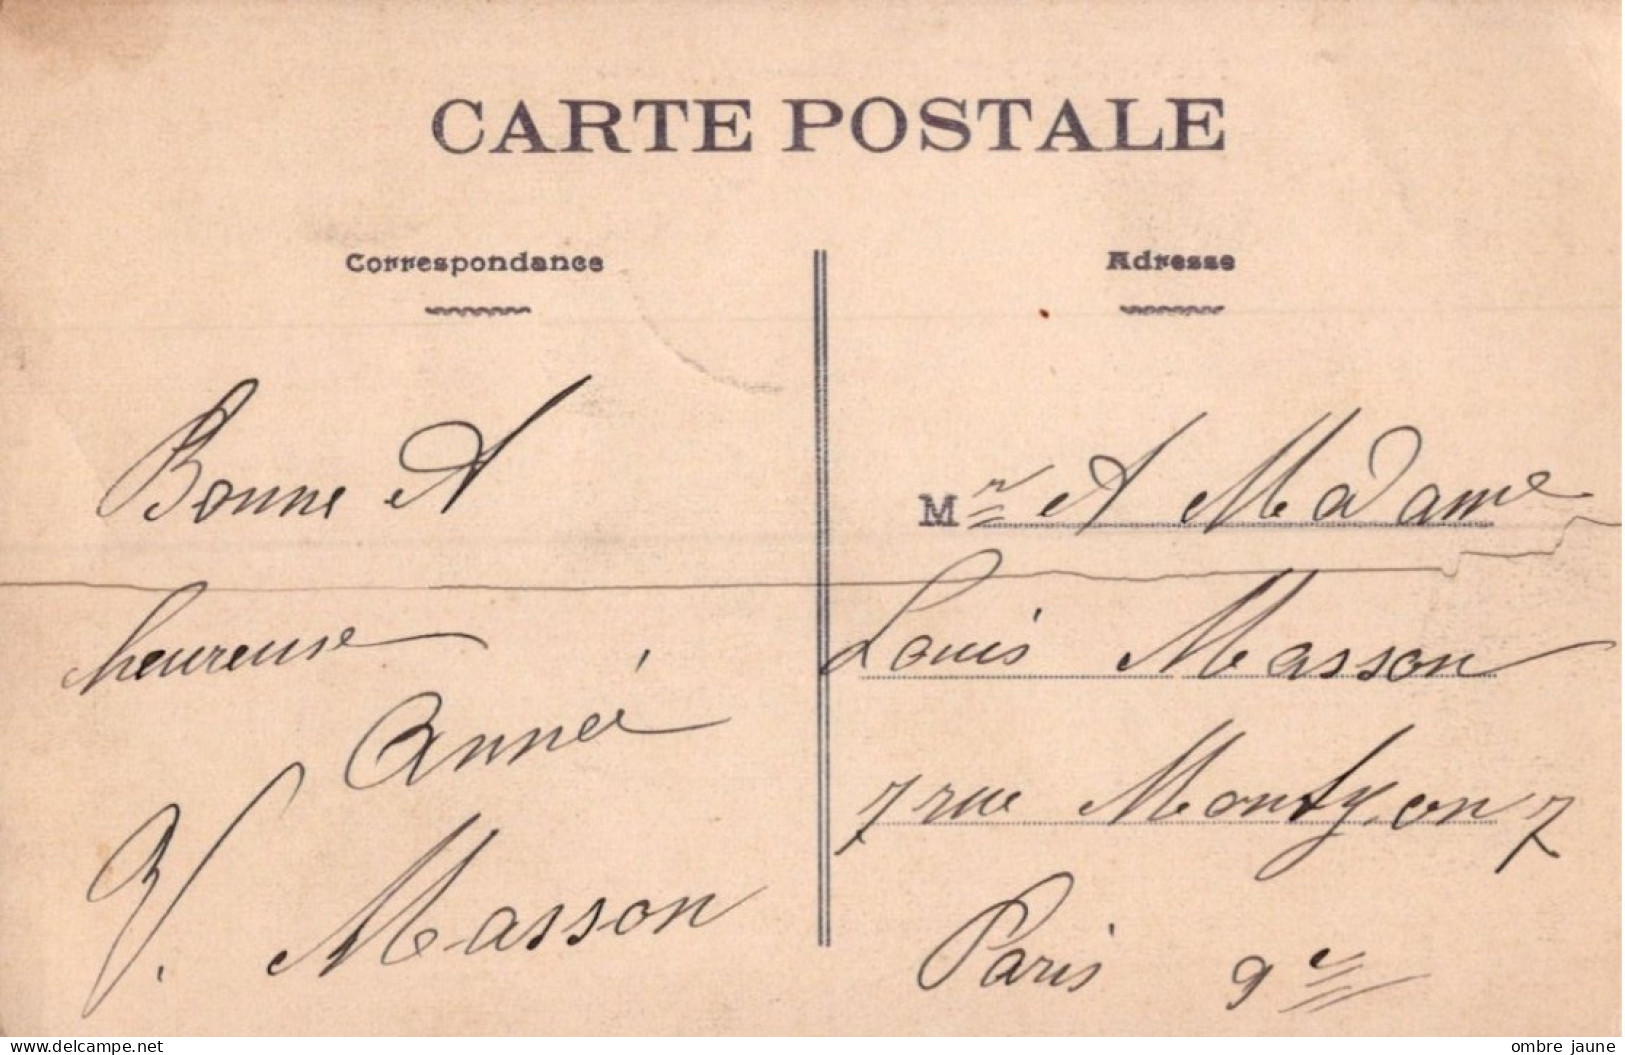 CARTE POSTALE
Correspondance
Adresse
Bonne et
heureuse
année
V. Masson
Mr et Madame
Louis Masson
7 rue Montyon 7
Paris 9e
www.delcampe.net
ombre jaune